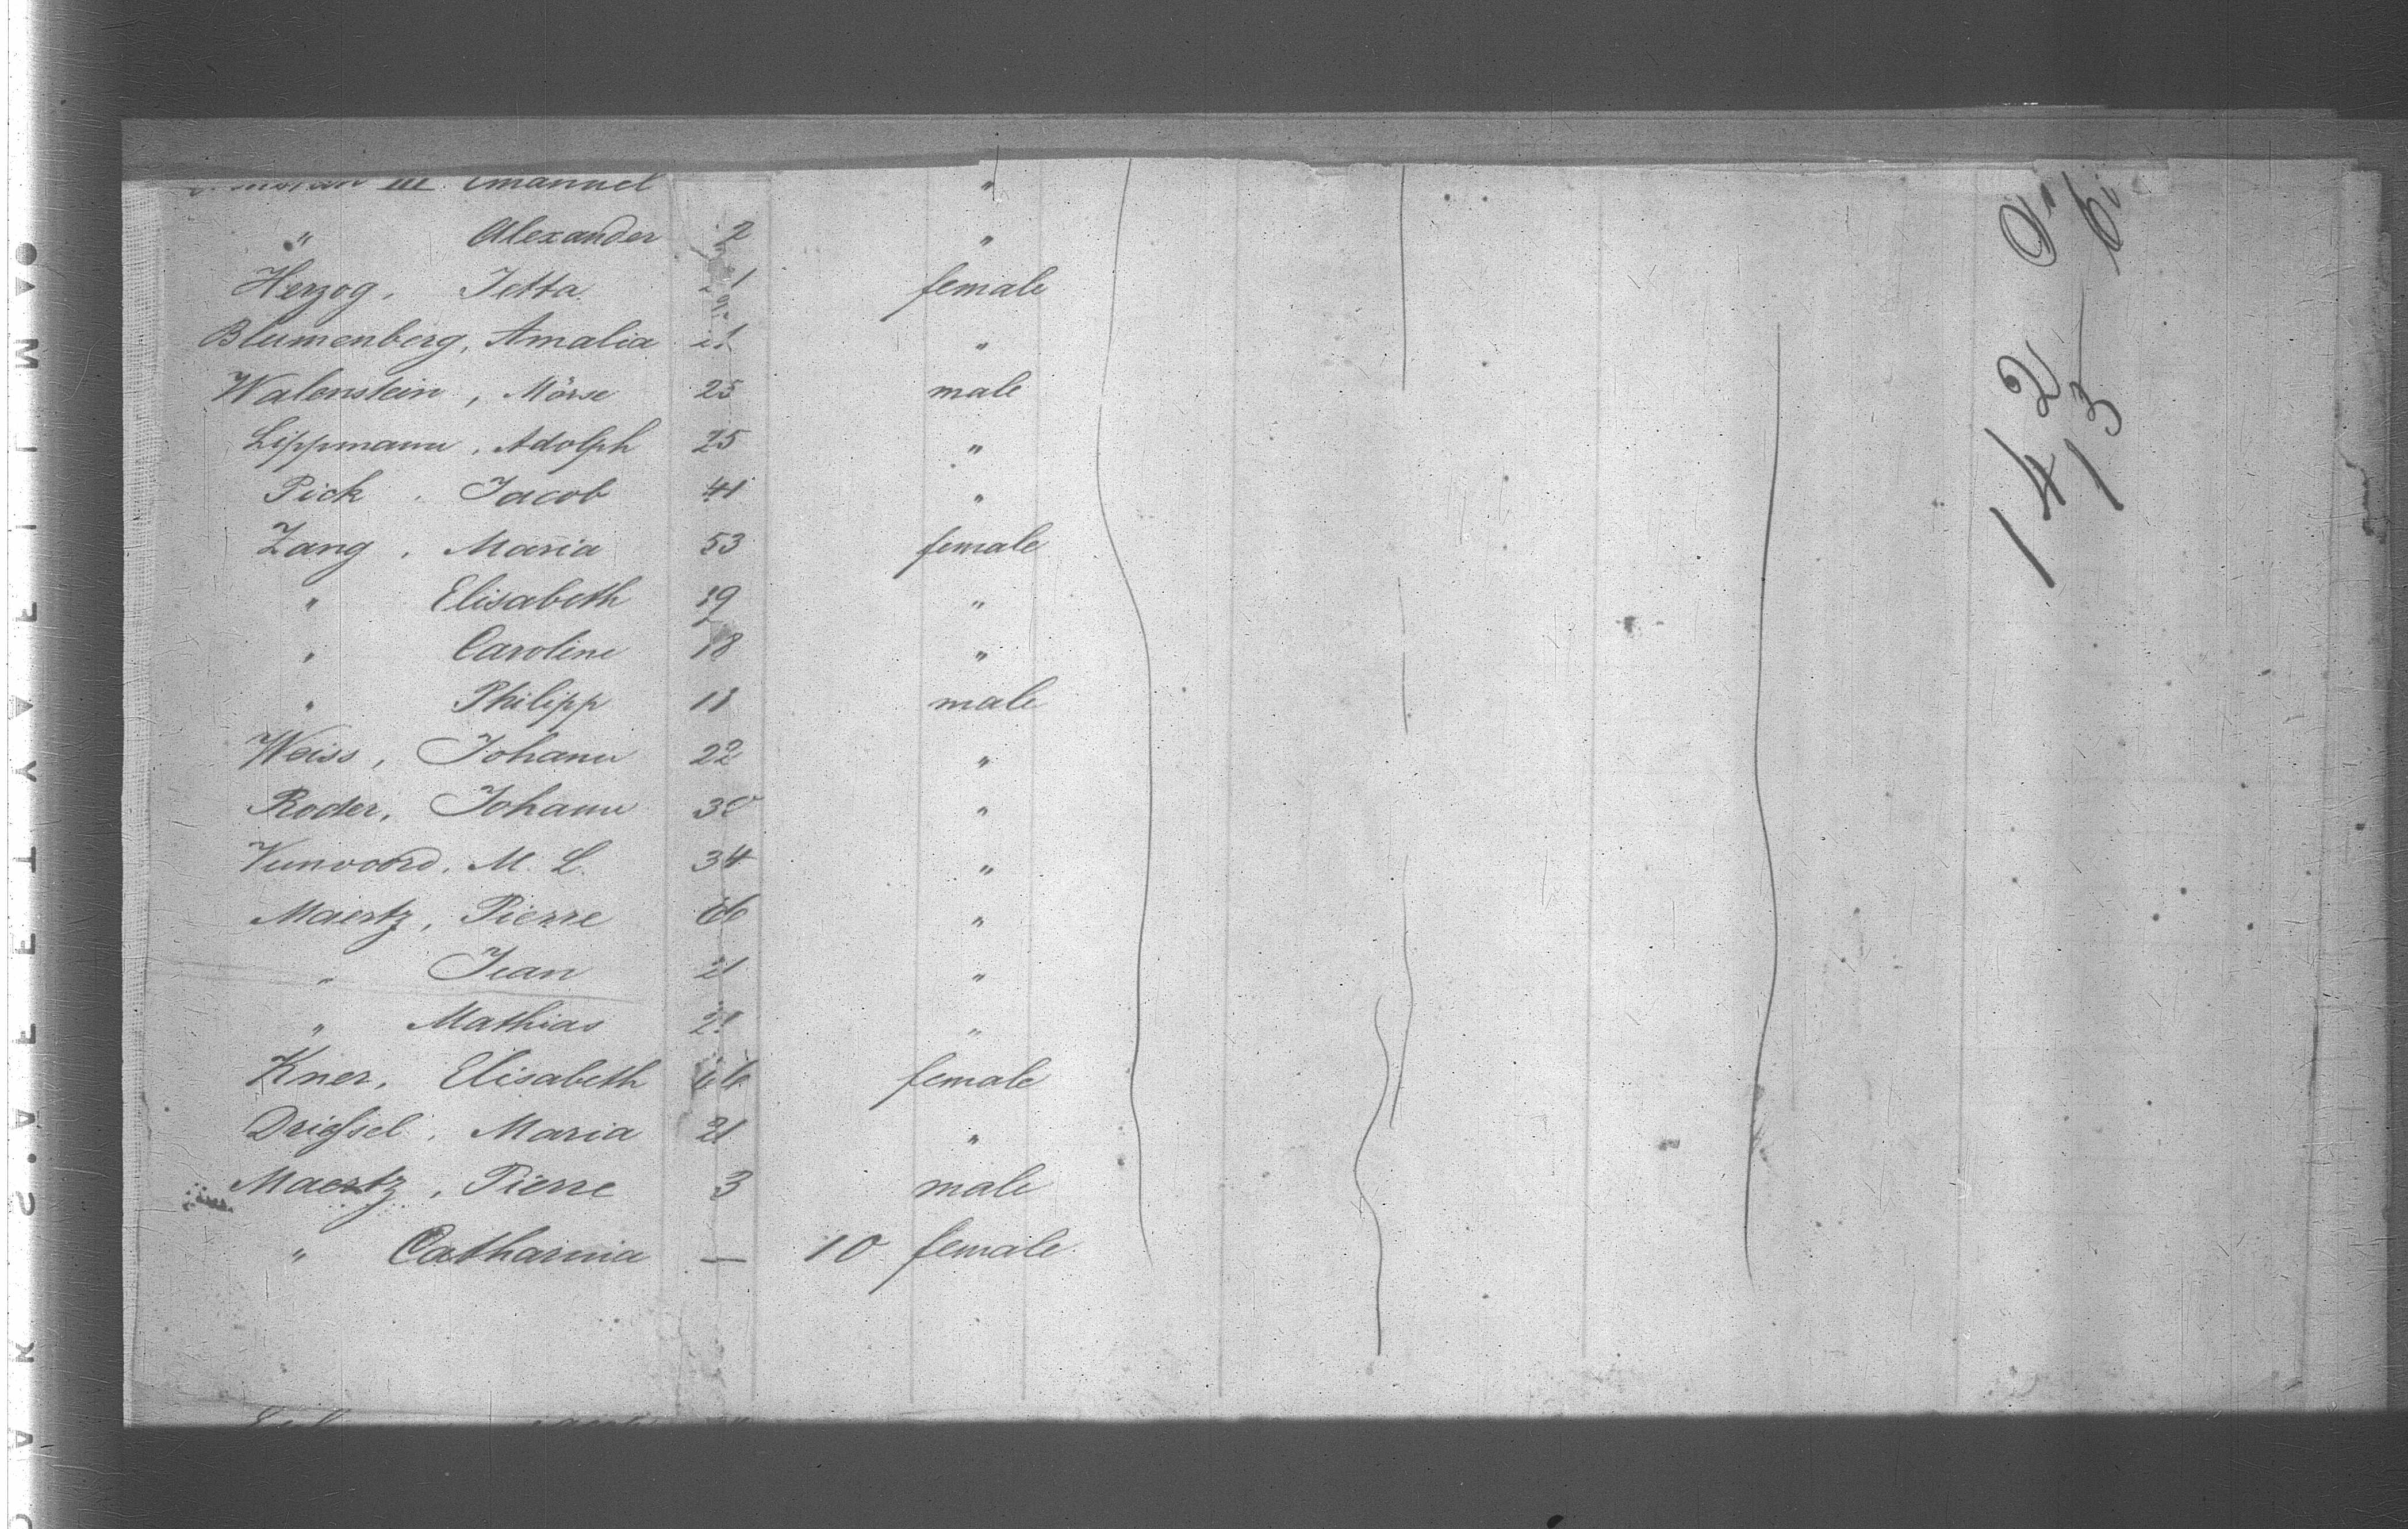 Emanuel "
" Alexander 2 "
Herzog, Jetta 21 female
Blumenberg, Amalia 21 "
Walenstein, Mörse 25 male
Lippmann, Adolph 25 "
Pick, Jacob 41 "
Zang, Maria 53 female
" Elisabeth 19 "
" Caroline 18 "
" Philipp 11 male
Weiss, Johann 22 "
Roder, Johann 30 "
Vunvoord, M. L. 34 "
Maertz, Pierre 66 "
" Jean 21 "
" Mathias 21 "
Kner, Elisabeth 66 female
Driessel, Maria 21 "
Maertz, Pierre 3 male
" Catharina — 10 female
142
13